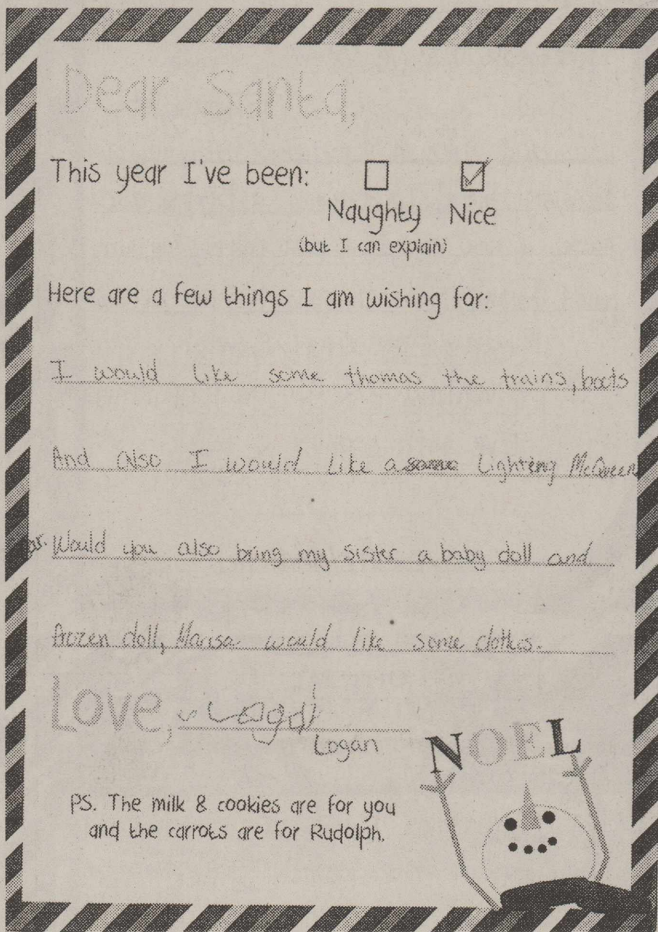 Dear Santa,
This year I've been:
Naughty Nice
(but I can explain)
Here are a few things I am wishing for:
I would like some thomas the trains, boats
And also I would like a some Lighting McQueen
car. Would you also bring my sister a baby doll and
frozen doll, Marisa would like some clothes.
Love, Logan
Logan
NOEL
PS. The milk & cookies are for you
and the carrots are for Rudolph.